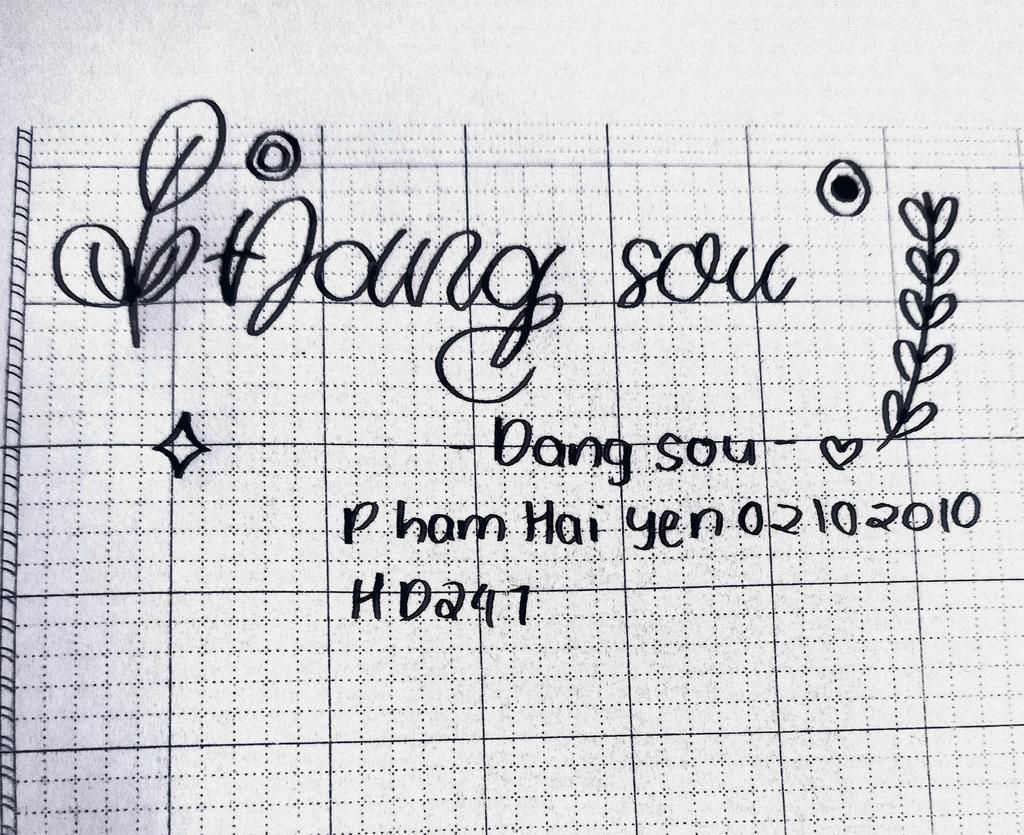 Đang sou
- Dang sou -
Pham Hai yen 02102010
HD241